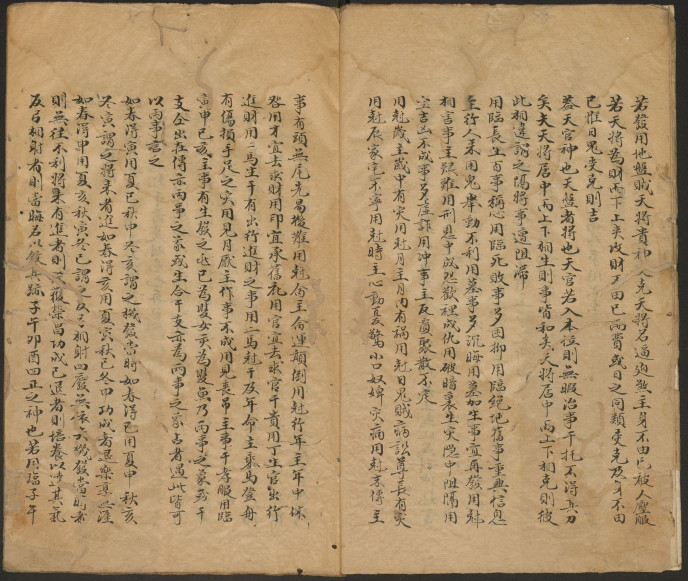 若發用他盤賊天將貴神人克天將名逼迫煞主身不由己被人壓服
若天將為財而下上夾攻財不由己而費或日之同類受克及身不由
己惟日鬼受克則吉
蓋天官神也天盤者將也天官若入本位則無暇治事干托不得其力
矣夫天將居中而上下相生則事皆和矣天將居中而上下相克則彼
此相違謂之隔將事遭阻滯
用臨長生百事稱心用臨死敗事多困抑用臨絕地舊事重興信息
至行人來用鬼舉動不利用墓事多沉晦用墓加生事宜再發用
相害事主疑難用刑恩中成怨歡裡成仇用破暗裏生災隱中阻隔用
空吉凶不成事多虛詐用沖事主反覆聚散不定
用尅歲主歲中有災用尅月主月內有禍用尅日鬼賊病訟尊長有災
用尅辰家宅不寧用尅時主心動憂驚小口奴婢災病用尅末傳主
事有頭無尾先易後難用尅命主命運顛倒用尅行年主年中休
咎用才宜去求財用印宜承舊花用官宜去求官干貴用丁主官出行
進財用二馬生干有出行進財之事用二馬尅干及年命主乘馬登舟
有傷損手足之災用見月厭主作事不成用見喪吊主事干孝服用臨
寅申巳亥主事有生發之地已為雙女亥為雙魚乃兩事之象或干
支合出在傳亦兩事之象或生合干支亦為兩事之象占者遇此皆可
以兩事言之
如春得寅用夏巳秋申冬亥謂之機發當時如春得巳用夏申秋亥
冬寅謂之將來者進如春得亥用夏寅秋巳冬申功成者退樂道之漄
如春得申用夏亥秋寅冬巳謂之反弓相射四廢無依大機發當時者
則無往不利將來有進者則災覆榮昌功成已退者則培養以涉其氣
反弓相射者則當晦名以斂其跡子午卯酉四正之神也若用臨子午